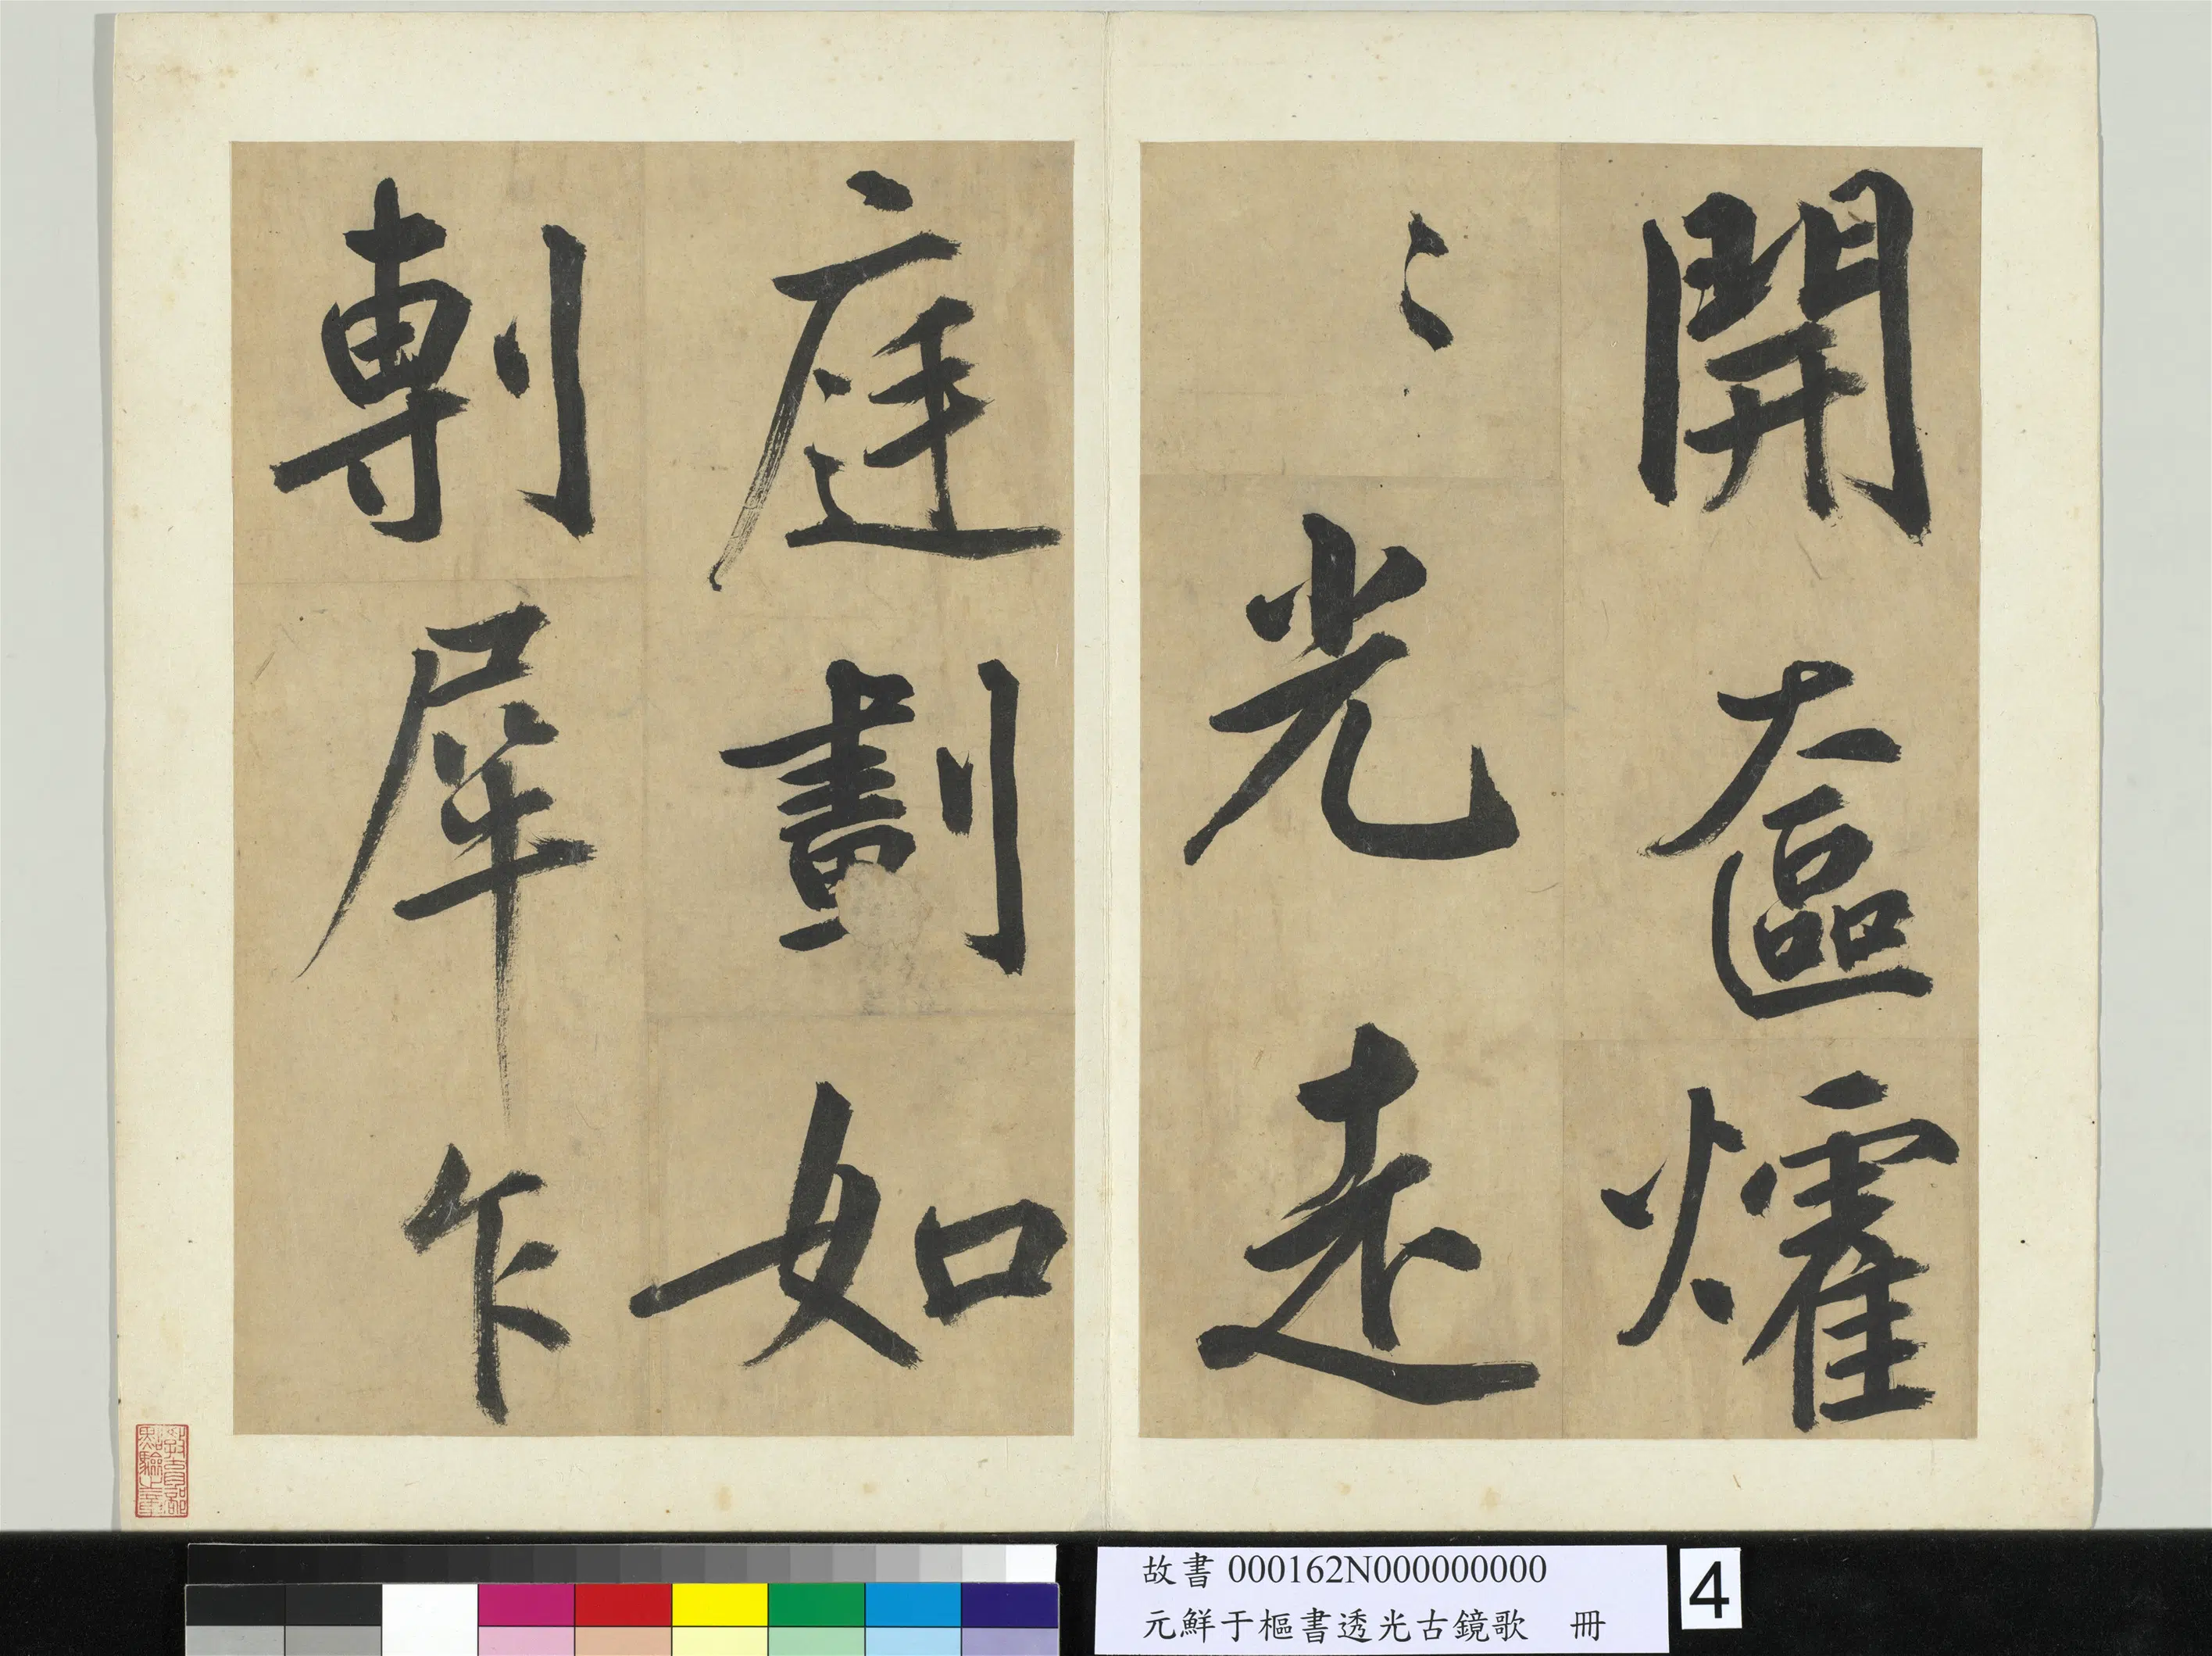 開奩爥
〻光走
庭劃如
剸犀乍
故書 000162N000000000
元鮮于樞書透光古鏡歌 冊
4